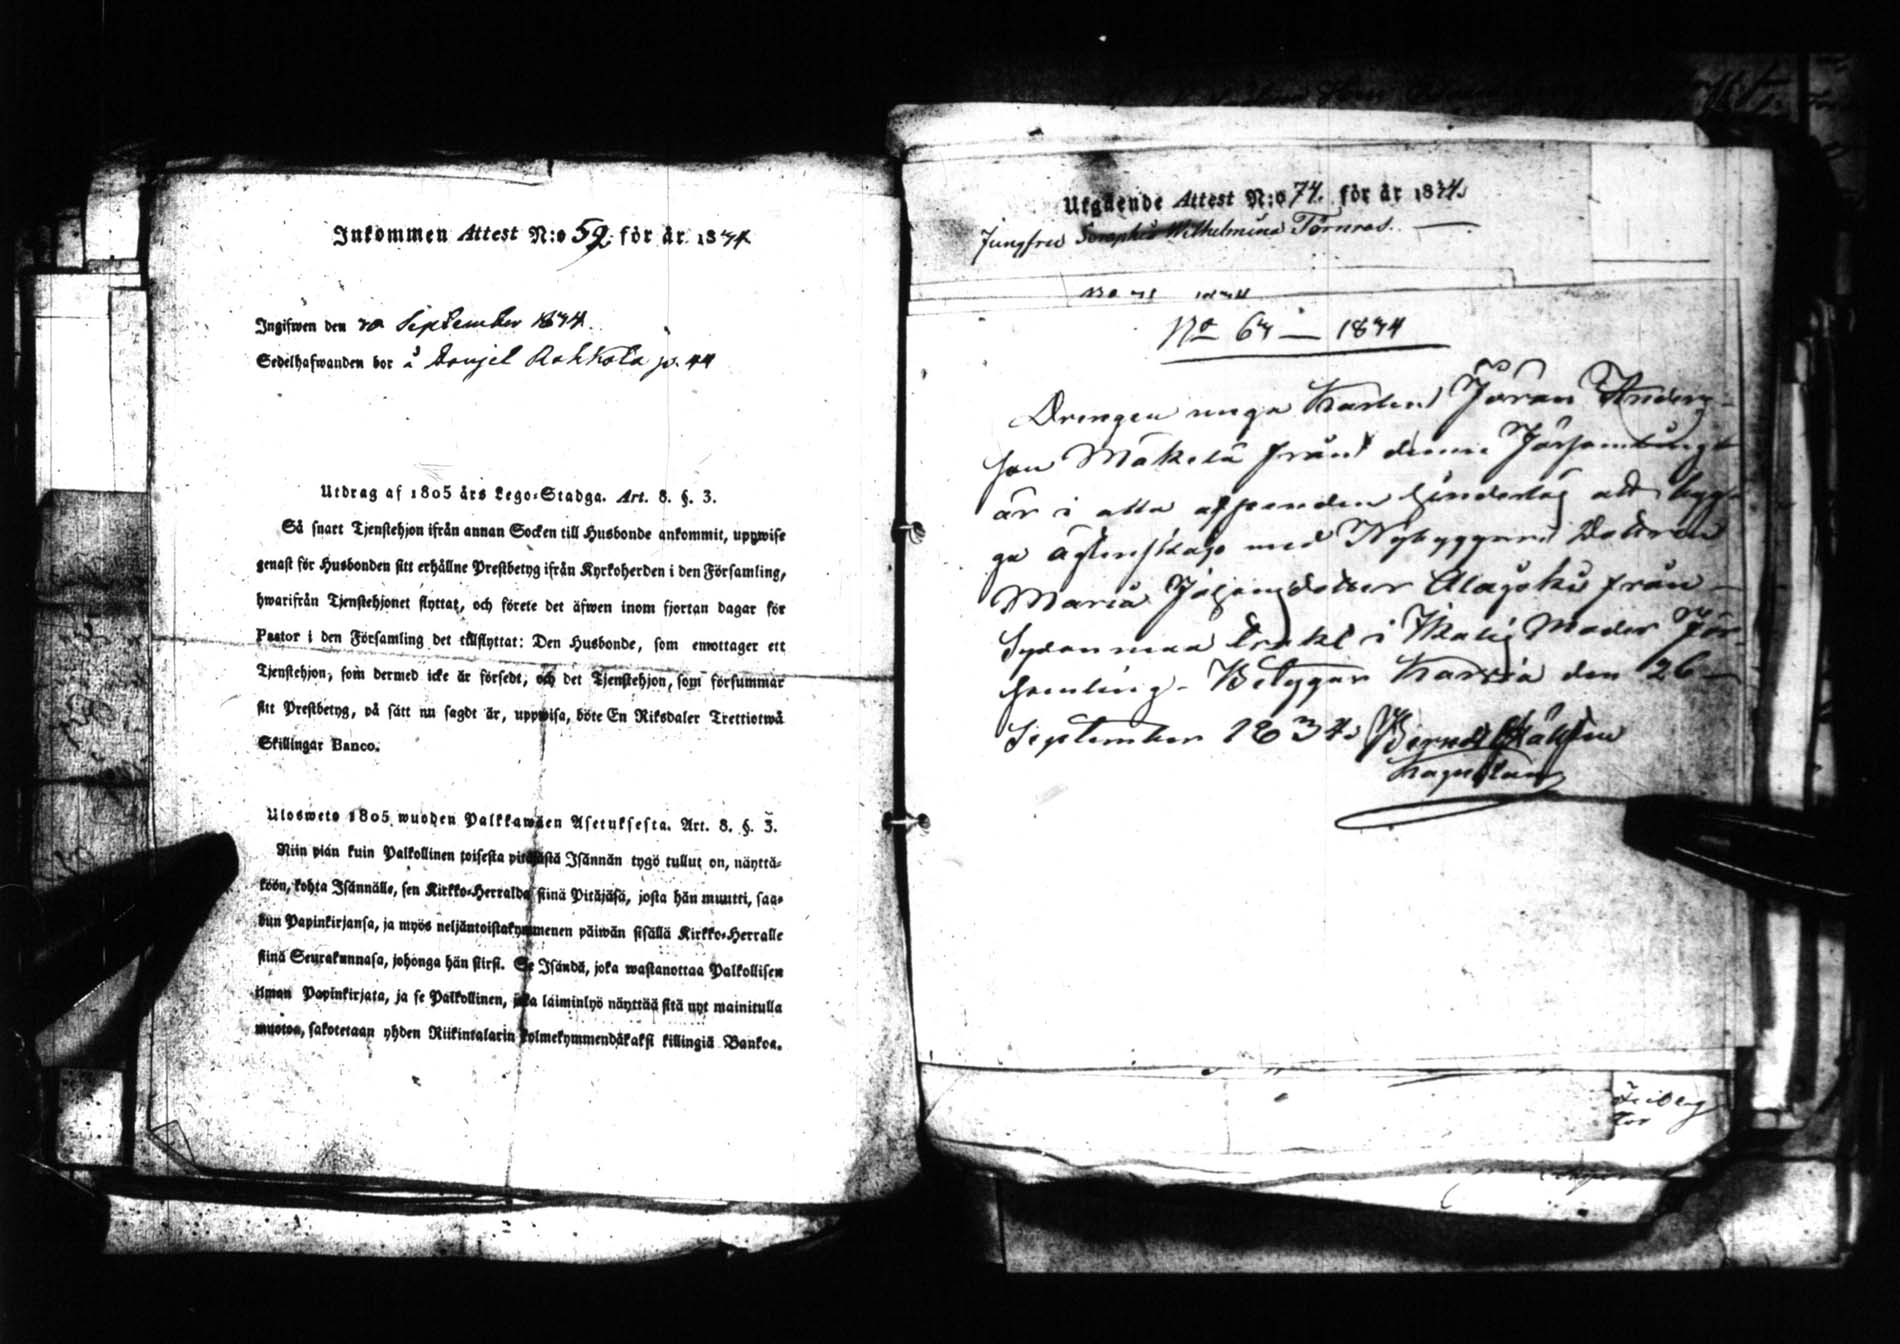 Inkommen Attest N:o 59. för år 1834
Ingifwen den 20 September 1834.
Sedelhafwanden bor å Rahkola p. 44
Utdrag af 1805 års Lego-Stadga. Art. 8. §. 3.
Så snart Tjenstehjon ifrån annan Socken till Husbonde ankommit, uppwise
genast för Husbonden sitt erhållne Prestbetyg ifrån Kyrkoherden i den Församling,
hwarifrån Tjenstehjonet flyttat, och förete det äfwen inom fjortan dagar för
Pastor i den Församling det tillflyttat: Den Husbonde, som emottager ett
Tjenstehjon, som dermed icke är försedt, och det Tjenstehjon, som försummar
sitt Prestbetyg, på sätt nu sagdt är, uppwisa, böte En Riksdaler Trettiotwå
Skillingar Banco.
Ulosweto 1805 wuoden Palkkawäen Asetuksesta. Art. 8. §. 3.
Niin pian kuin Palkollinen toisesta pitäjästä Isännän tygö tullut on, näyttä-
köön, kohta Isännälle, sen Kirkko-Herralda siinä Pitäjäsä, josta hän muutti, saa-
dun Papinkirjansa, ja myös neljäntoistakymmenen päiwän sisällä Kirkko-Herralle
siinä Seurakunnasa, johonga hän siirsi. Se Isändä, joka wastanottaa Palkollisen
ilman Papinkirjata, ja se Palkollinen, joka laiminlyö näyttää sitä nyt mainitulla
muotoa, sakotetaan yhden Riikintalarin kolmekymmendäkaksi killingiä Bankoa.
Utgående Attest N:o 74. för år 1834.
Jungfru Sophia Wilhelmina Törnros.
No 64 — 1834
Drengen unga Karlen Jöran Anders-
son Mäkelä från denna Församling
är i alla afseenden hinderlös att bygg-
ga Äktenskap med Nybyggare Dottren
Maria Johansdotter Alajoki från
Sydänmaa trakt i Moder För-
samling. Betygar Karvia den 26
September 1834. Bernd
Kapellan